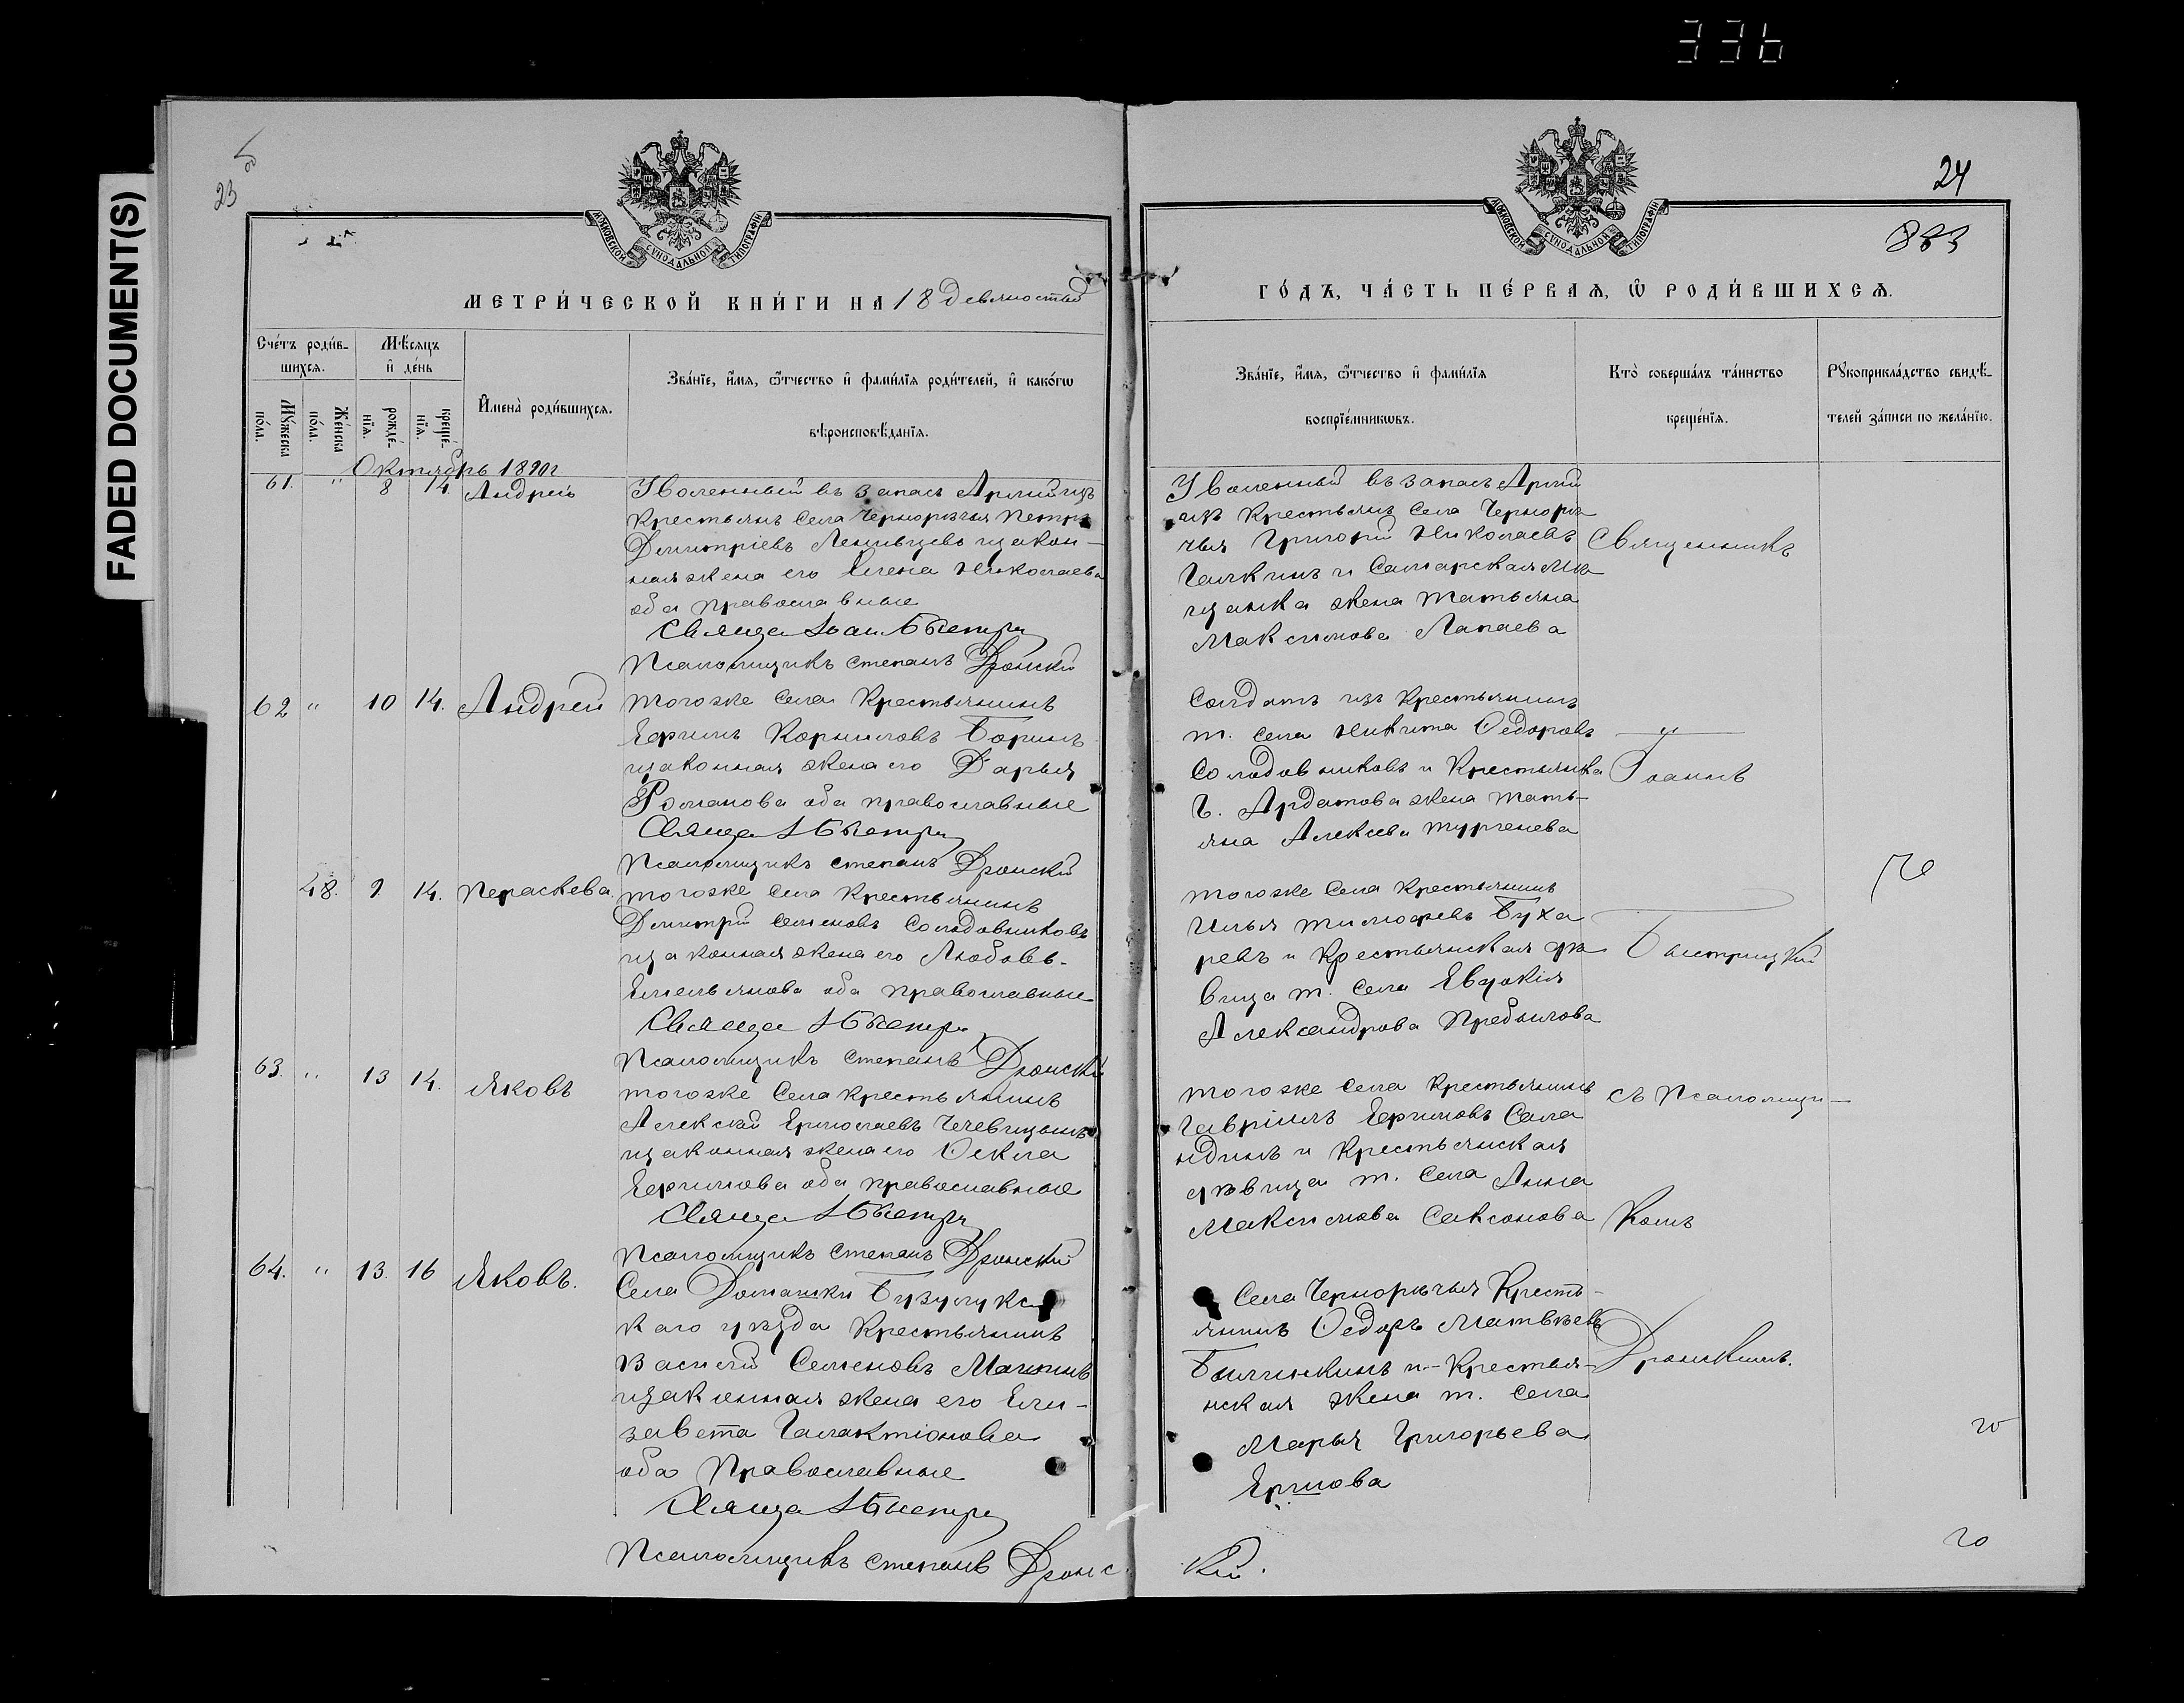 336
FADED DOCUMENT(S)
23
24
833
МОСКОВСКОЙ СУНОДАЛЬНОЙ ТИПОГРАФІИ
МОСКОВСКОЙ СУНОДАЛЬНОЙ ТИПОГРАФІИ
МЕТРИ́ЧЕСКОЙ КНИ́ГИ НА 18 девяностый
ГО́ДЪ, ЧА́СТЬ ПЕ́РВАѦ, Ѽ РОДИ́ВШИХСѦ.
Сче́тъ роди́вшихсѧ.
Мꙋ́жеска по́ла.
Же́нска по́ла.
Мѣ́сѧцъ и҆ де́нь
рожде́нїѧ.
креще́нїѧ.
И҆мена̀ роди́вшихсѧ.
Зва́нїе, и҆́мѧ, ѻ҆́тчество и҆ фами́лїѧ роди́телей, и҆ како́гѡ
вѣроисповѣ́данїѧ.
Зва́нїе, и҆́мѧ, ѻ҆́тчество и҆ фами́лїѧ
воспрїе́мникѡвъ.
Кто̀ соверша́лъ та́инство
креще́нїѧ.
Рꙋкоприкла́дство свидѣ́телей за́писи по жела́нїю.
Октябрь 1890г
61. " 8 14. Андрей
Уволенный въ запасъ Армій изъ
Крестьянъ Села Чернорѣчья Петръ
Димитріевъ Ленивцевъ изакон-
ная жена его Елена Николаева
оба православные
Псаломщикъ Степанъ Дронскій
Уволенный въ запасъ Армій
изъ Крестьянъ Села Чернорѣ
чья Григорій Николаевъ
Галкинъ и Самарская Мѣ
щанка жена Татьяна
Максимова Лапаева
Священникъ
62 " 10 14. Андрей
тогоже Села Крестьянинъ
Ефимъ Корниловъ Боринъ
изаконная жена его Дарья
Романова оба православные
Псаломщикъ Степанъ Дронскій
Солдатъ изъ Крестьянинъ
т. села Никита Ѳедоровъ
Солодовниковъ и Крестьянка
Г. Ардатова жена Тать-
яна Алексѣева Тургенева
Іоаннъ
48. 9 14. Пераскева
тогоже Села Крестьянинъ
Димитрій Семеновъ Солодовниковъ
изаконная жена его Любовь-
Емельянова оба православные
Псаломщикъ Степанъ Дронскій
тогоже Села Крестьянинъ
Илья Тимофеевъ Буха
ревъ и Крестьянская дѣ
вица т. Села Евдокія
Александрова
Быстрицкій
63. " 13 14. Яковъ
тогоже Села Крестьянинъ
Алексѣй Ермолаевъ Чечевицынъ
изаконная жена его Ѳекла
Ефимова оба православные
Псаломщикъ Степанъ Дронскій
тогоже Села Крестьянинъ
Гавріилъ Ефимовъ Сала
ндинъ и Крестьянская
дѣвица т. Села Анна
Максимова Саксонова
съ Псаломщи-
комъ
64. " 13. 16 Яковъ.
Села Домашки Бузулукс
каго уѣзда Крестьянинъ
Василій Семеновъ
изаконная жена его Ели-
завета Галактіонова
оба Православные
Псаломщикъ Степанъ Дронс
кій.
Села Чернорѣчья Кресть-
янинъ Ѳедоръ Матвѣевъ
и Крестья-
нская жена т. Села
Марья Григорьева
Ермова
Дронскимъ.